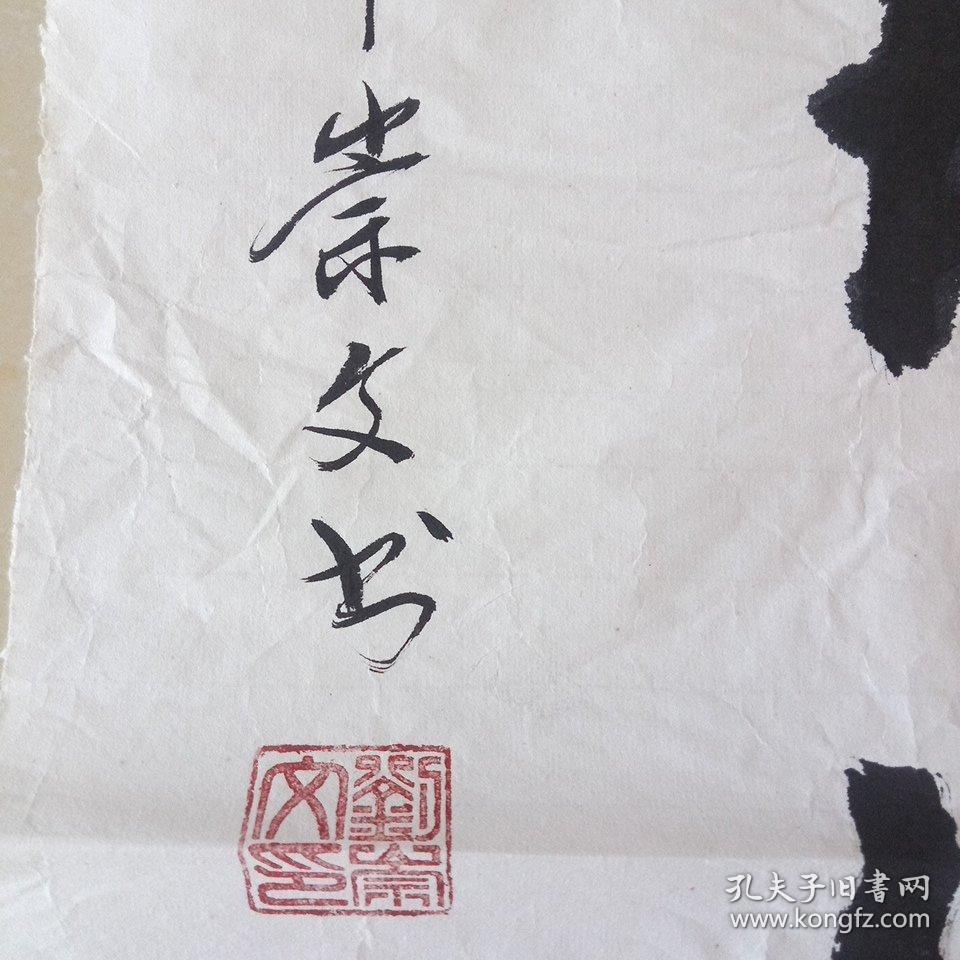 崇文书
劉崇文印
孔夫子旧書网
www.kongfz.com